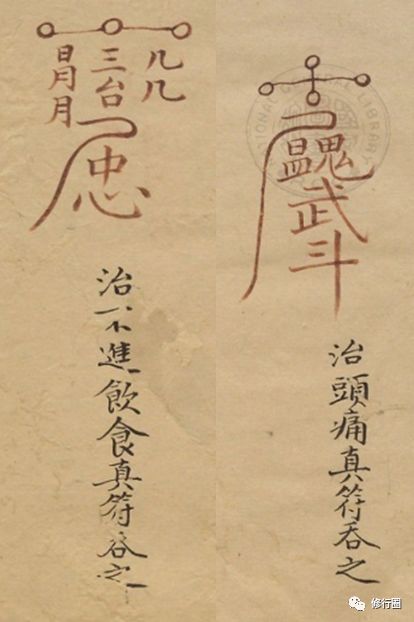 三台
忠
治一不進飲食真符吞之
武斗
治頭痛真符吞之
NATIONAL CENTRAL LIBRARY
修行圈